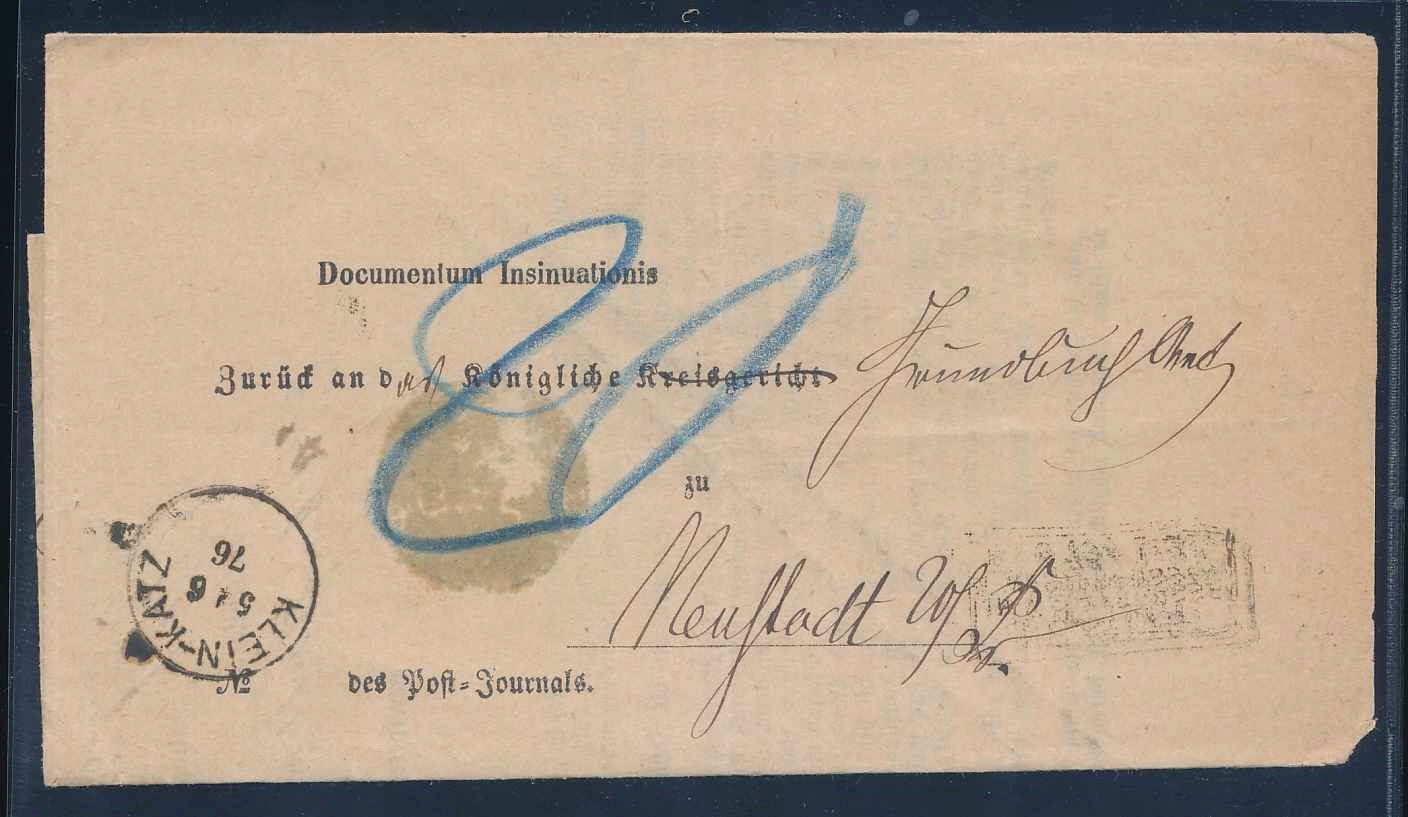 Documentum Insinuationis
Zurück an das Königliche Kreisgericht Grundbuch Amt
zu
Neustadt W/Pr
No des Post-Journals.
KLEIN-KATZ
5 6
76
20